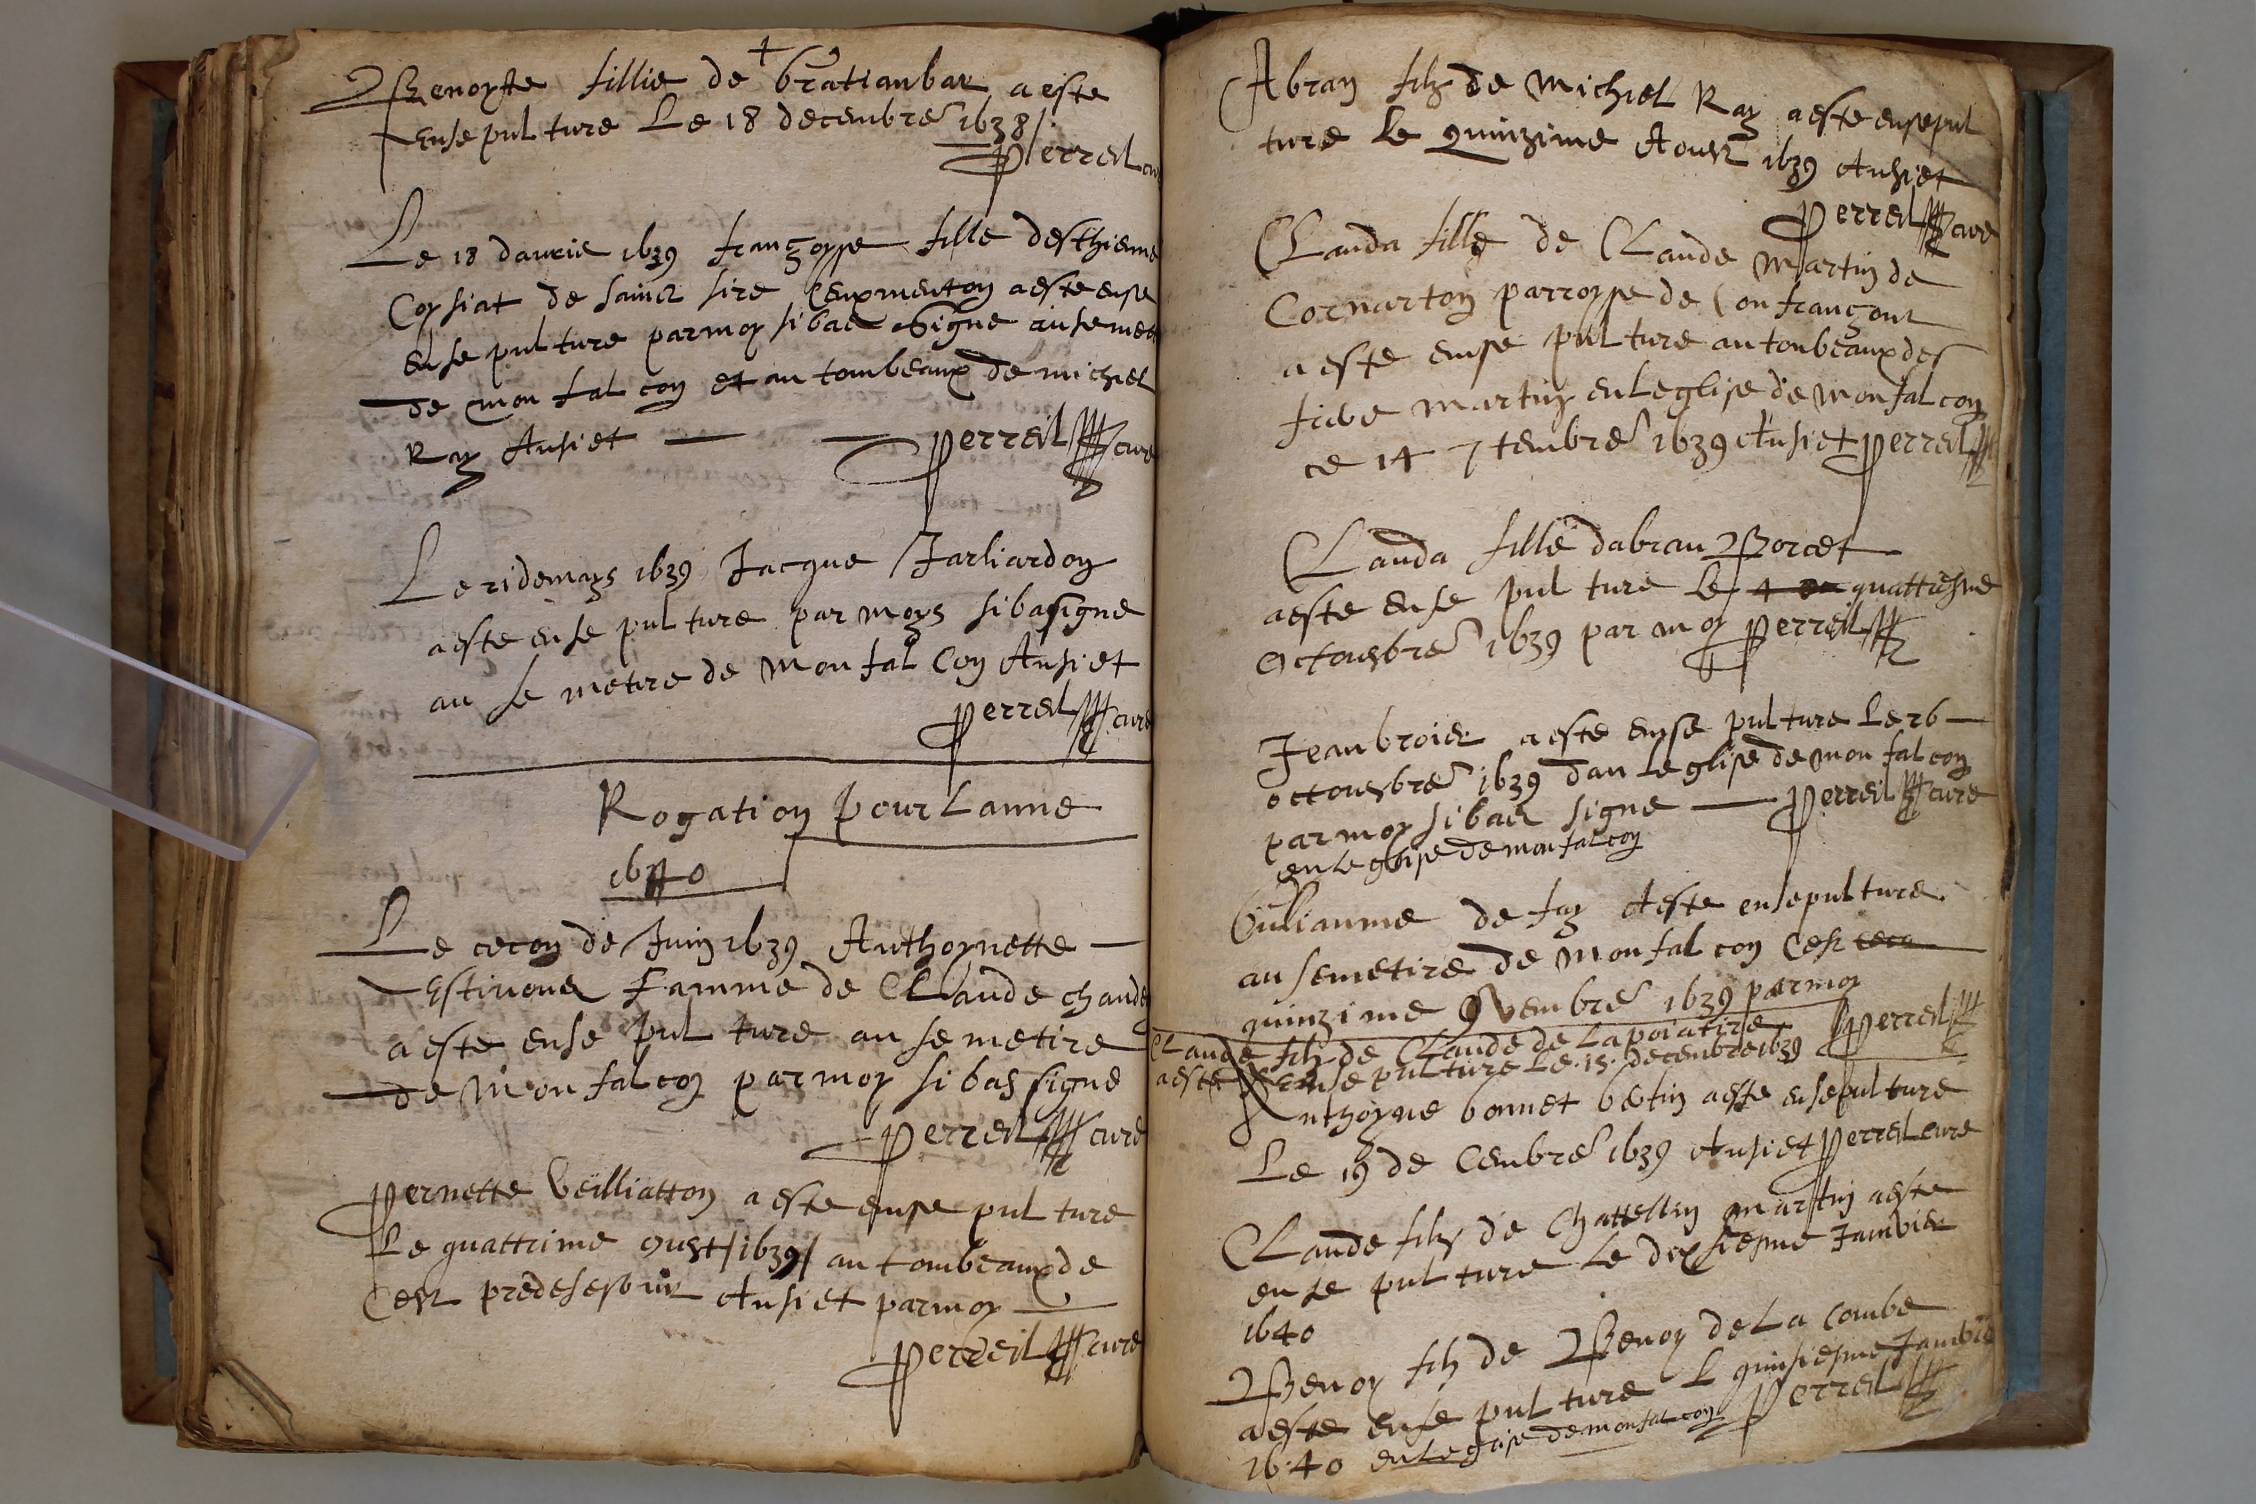 Benoyte fillie de gratianbar a este
ensepulture Le 18 decembre 1638
Perreil cu
Le 18 davrie 1639 françoyse fille desthienne
Coysiat de sainct sire a este ense
ense pulture par moy si bas Signe au semet
de mon fal con et au tombeaux de michel
Ray Ansiet Perreil cure
Le 21 de mays 1639 Jacque Jarliardon
a este ense pulture par moys si basigne
au se metire de Mon fal con Ansiet
Perreil cure
Rogation pour Lanne
1640
Le cecon de Juin 1639 Anthoynette
Famme de CLaude chaude
a este ense pul ture au se metire
de Mon falcon par moy si bas signe
Perreil cure
Pernette Veilliatton a este ense pul ture
Le quattrime oust / 1639 / au tombeaux de
Cest predesesour Ansiet par moy
Perreil cure
Abran filz de Michiel Ray a este ensepul
ture Le quinzime Aoust 1639 Ansiet
Perreil cure
CLauda fille de CLaude Martin de
Cornarton parroysse de Con françout
a este ense pulture au tonbeaux des
Martin en Leglise de Mon fal con
ce 14 7tembre 1639 Ansiet Perreil
CLauda fille dabran Borcet
a este ense pul ture Le 4 quattriesme
Octousbre 1639 par moy Perreil
Jean broier a este ense pulture Le 26
octousbre 1639 dan Leglise de Mon fal con
par moy si bas signe Perreil cure
en Leglise de mon fal con
Guilianme de fay Aeste ensepulture
au semetire de Mon fal con Cest
quinzime 9vembre 1639 par moy
Perreil
CLaude filz de CLaude de La poiatire
a este Ense pulture Le .15. decembre 1639
Anthoyne bonnet bertin a este ensepulture
Le 19 de Cembre 1639 Ansiet Perreil cure
CLaude filz de Chattellin Martin a este
en se pul ture Le dixsiesme Janvier
1640
Benoy filz de Benoy de La Combe
a este ense pulture L quinsiesme Janvie
1640 en Leglise de mon fal con Perreil